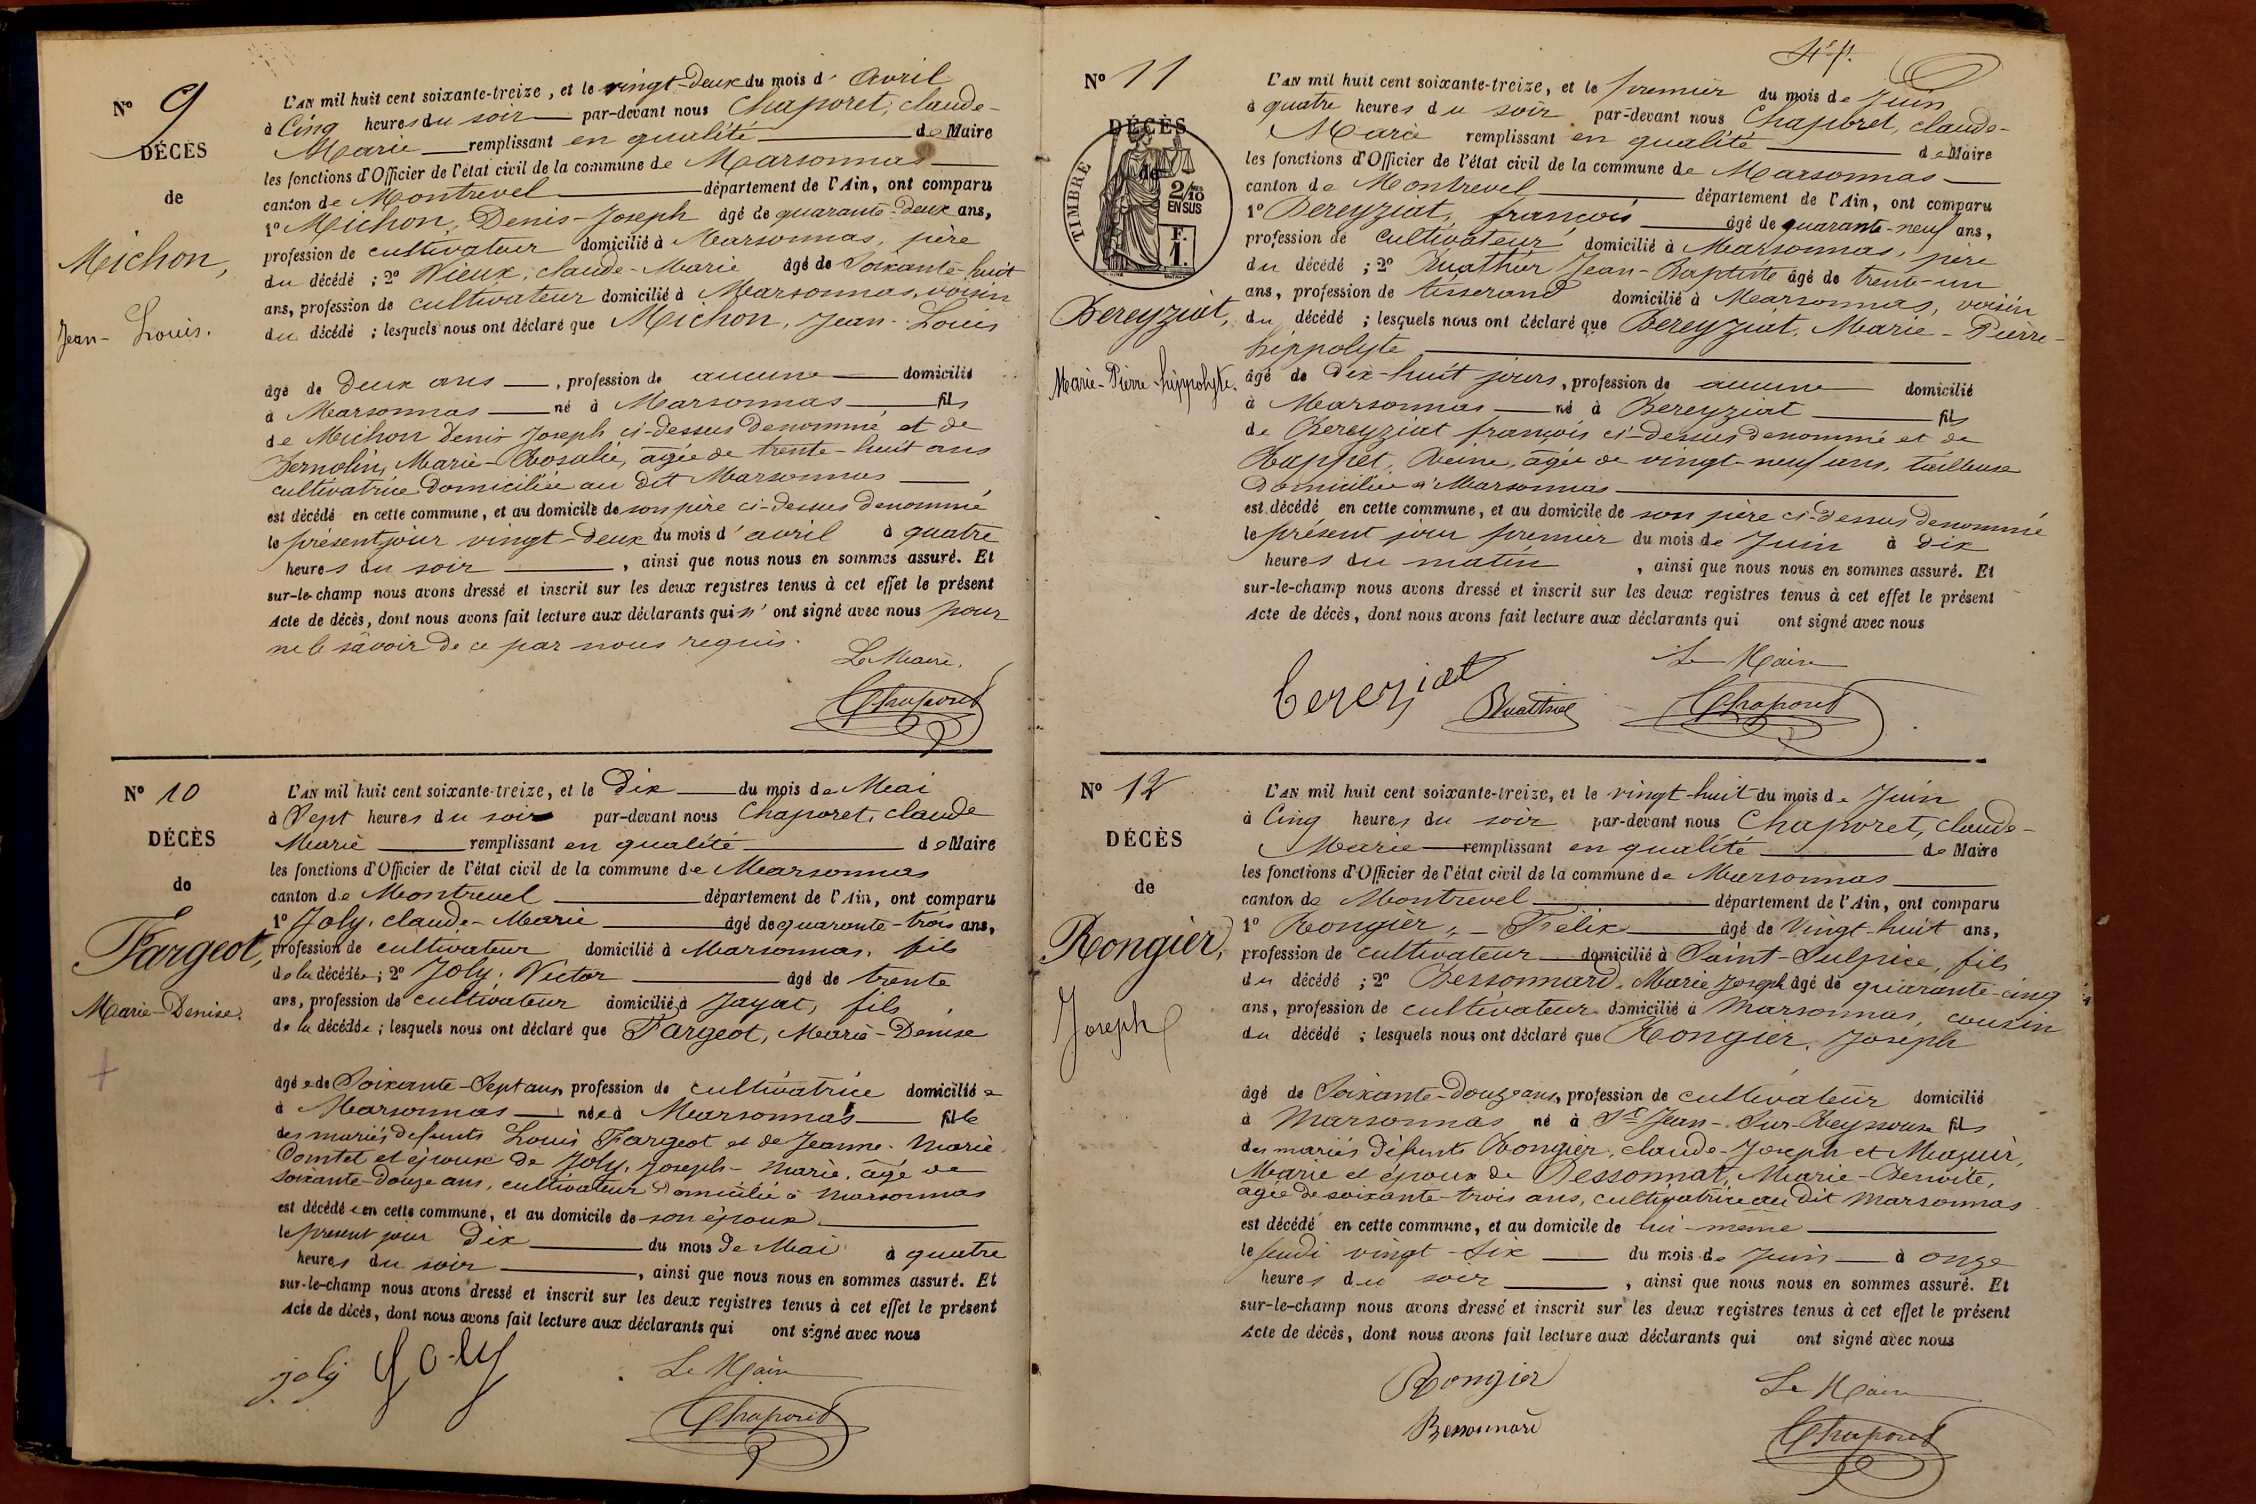 N° 9
DÉCÈS
de
Michon,
Jean-Louis.
L'AN mil huit cent soixante-treize, et le vingt-deux du mois d'Avril
à Cinq heures du soir par-devant nous Chaporet, claude-
Marie remplissant en qualité de Maire
les fonctions d'Officier de l'état civil de la commune de Marsonnas
canton de Montrevel département de l'Ain, ont comparu
1° Michon, Denis-Joseph âgé de quarante-deux ans,
profession de cultivateur domicilié à Marsonnas, père
du décédé ; 2° Vieux, claude-Marie âgé de Soixante-huit
ans, profession de cultivateur domicilié à Marsonnas, voisin
du décédé ; lesquels nous ont déclaré que Michon, Jean-Louis
âgé de Deux ans, profession de aucune domicilié
à Marsonnas né à Marsonnas fils
de Michon Denis Joseph ci-dessus denommé et de
Fernolin, Marie-Rosalie, âgée de trente-huit ans
cultivatrice domiciliée au dit Marsonnas
est décédé en cette commune, et au domicile de son père ci-dessus denommé
le présent jour vingt-deux du mois d'avril à quatre
heures du soir, ainsi que nous nous en sommes assuré. Et
sur-le-champ nous avons dressé et inscrit sur les deux registres tenus à cet effet le présent
Acte de décès, dont nous avons fait lecture aux déclarants qui n'ont signé avec nous pour
ne le savoir de ce par nous requis.
Le Maire.
Chaporet
N° 10
DÉCÈS
de
Fargeot,
Marie-Denise.
L'AN mil huit cent soixante-treize, et le Dix du mois de Mai
à Sept heures du soir par-devant nous Chaporet, claude
Marie remplissant en qualité de Maire
les fonctions d'Officier de l'état civil de la commune de Marsonnas
canton de Montrevel département de l'Ain, ont comparu
1° Joly, claude-Marie âgé de quarante-trois ans,
profession de cultivateur domicilié à Marsonnas, fils
de la décédée ; 2° Joly, Victor âgé de trente
ans, profession de cultivateur domicilié à Jayat, fils
de la décédée ; lesquels nous ont déclaré que Fargeot, Marie-Denise
âgée de Soixante-Sept ans, profession de cultivatrice domiciliée
à Marsonnas née à Marsonnas fille
des mariés defunts Louis Fargeot et de Jeanne-Marie
Comtet et épouse de Joly, Joseph-Marie, âgé de
soixante-douze ans, cultivateur domicilié à Marsonnas
est décédée en cette commune, et au domicile de son époux
le présent jour Dix du mois de Mai à quatre
heures du soir, ainsi que nous nous en sommes assuré. Et
sur-le-champ nous avons dressé et inscrit sur les deux registres tenus à cet effet le présent
Acte de décès, dont nous avons fait lecture aux déclarants qui ont signé avec nous
joly Joly Le Maire
Chaporet
N° 11
DÉCÈS
de
TIMBRE
2/10
EN SUS
F.
1.
Bereyziat,
Marie-Pierre-hippolyte.
L'AN mil huit cent soixante-treize, et le premier du mois de Juin
à quatre heures du soir par-devant nous Chaporet, claude-
Marie remplissant en qualité de Maire
les fonctions d'Officier de l'état civil de la commune de Marsonnas
canton de Montrevel département de l'Ain, ont comparu
1° Bereyziat, françois âgé de quarante-neuf ans,
profession de cultivateur domicilié à Marsonnas, père
du décédé ; 2° Buathier Jean-Baptiste âgé de trente-un
ans, profession de tisserand domicilié à Marsonnas, voisin
du décédé ; lesquels nous ont déclaré que Bereyziat, Marie-Pierre-
hippolyte
âgé de dix-huit jours, profession de aucune domicilié
à Marsonnas né à Bereyziat fils
de Bereyziat françois ci-dessus denommé et de
Rappet, Reine, âgée de vingt-neuf ans, tailleuse
domiciliée à Marsonnas
est décédé en cette commune, et au domicile de son père ci-dessus denommé
le présent jour premier du mois de Juin à dix
heures du matin, ainsi que nous nous en sommes assuré. Et
sur-le-champ nous avons dressé et inscrit sur les deux registres tenus à cet effet le présent
Acte de décès, dont nous avons fait lecture aux déclarants qui ont signé avec nous
Le Maire
bereziat Buathier Chaporet
N° 12
DÉCÈS
de
Rongier,
Joseph
L'AN mil huit cent soixante-treize, et le vingt-huit du mois de Juin
à Cinq heures du soir par-devant nous Chaporet, claude-
Marie remplissant en qualité de Maire
les fonctions d'Officier de l'état civil de la commune de Marsonnas
canton de Montrevel département de l'Ain, ont comparu
1° Rongier, Félix âgé de Vingt-huit ans,
profession de cultivateur domicilié à Saint-Sulpice, fils
du décédé ; 2° Bessonnard, Marie Joseph âgé de quarante-cinq
ans, profession de cultivateur domicilié à Marsonnas, cousin
du décédé ; lesquels nous ont déclaré que Rongier, Joseph
âgé de Soixante-Douze ans, profession de cultivateur domicilié
à Marsonnas né à St Jean-Sur-Reyssouze fils
des mariés défunts Rongier, claude-Joseph et Maguir,
Marie et époux de Bessonnat, Marie-Benoite,
agée de soixante-trois ans, cultivatrice au dit Marsonnas
est décédé en cette commune, et au domicile de lui-même
le jeudi vingt-six du mois de Juin à onze
heures du soir, ainsi que nous nous en sommes assuré. Et
sur-le-champ nous avons dressé et inscrit sur les deux registres tenus à cet effet le présent
Acte de décès, dont nous avons fait lecture aux déclarants qui ont signé avec nous
Rongier Le Maire
Bessonnard Chaporet